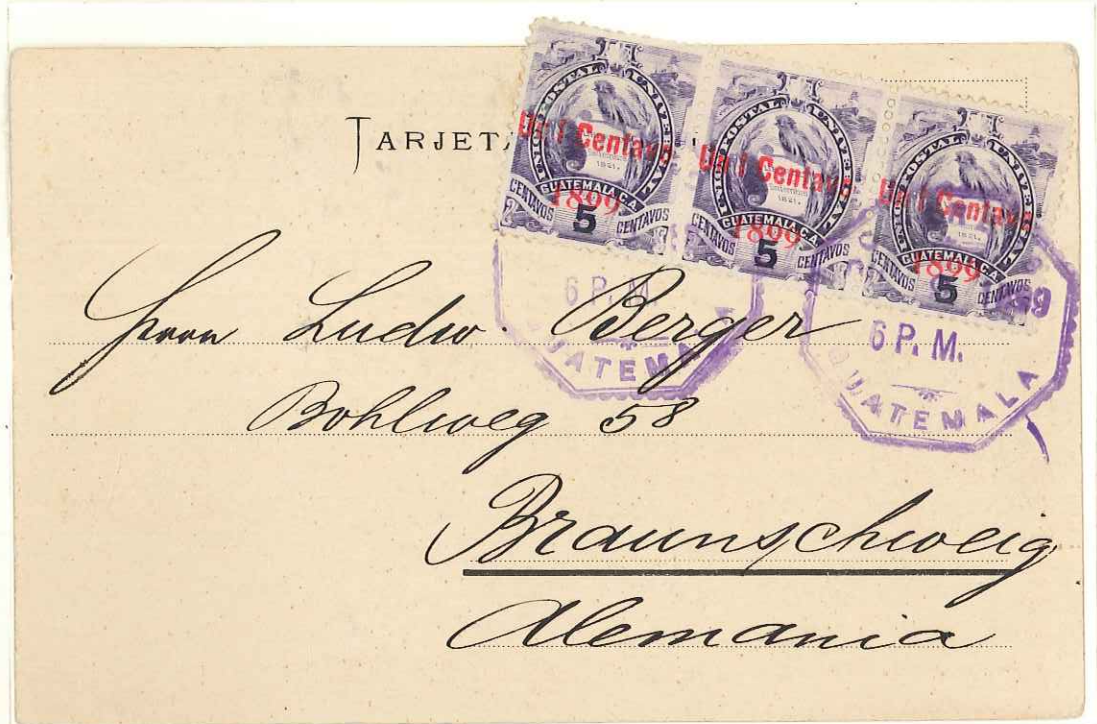 TARJETA
UNION POSTAL UNIVERSAL
1821.
Un 1 Centavo
GUATEMALA C.A.
1899
CENTAVOS 5 CENTAVOS
UNION POSTAL UNIVERSAL
1821.
Un 1 Centavo
GUATEMALA C.A.
1899
CENTAVOS 5 CENTAVOS
UNION POSTAL UNIVERSAL
1821.
Un 1 Centavo
GUATEMALA C.A.
1899
CENTAVOS 5 CENTAVOS
6 P. M.
GUATEMALA
99
6 P. M.
GUATEMALA
Herrn Ludw. Berger
Bohlweg 58
Braunschweig
Alemania